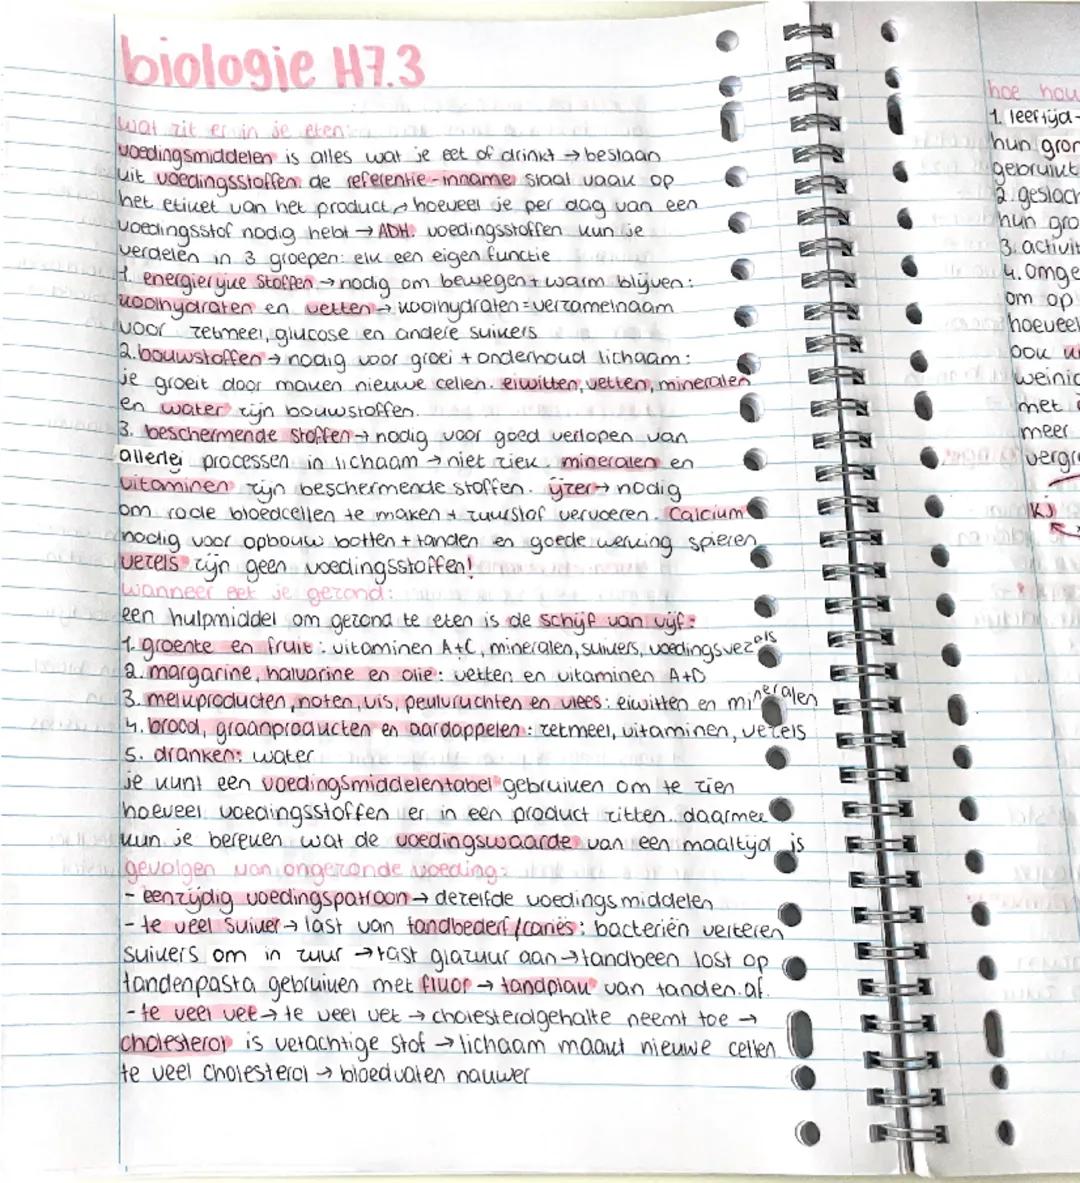 biologie H7.3
wat zit er in je eten:
voedingsmiddelen is alles wat je eet of drinkt → bestaan
uit voedingsstoffen. de referentie-inname staat vaak op
het etiket van het product → hoeveel je per dag van een
voedingsstof nodig hebt → ADH. voedingsstoffen kun je
verdelen in 3 groepen: elk een eigen functie
1. energierijke stoffen → nodig om bewegen + warm blijven:
koolhydraten en vetten → koolhydraten = verzamelnaam
voor zetmeel, glucose en andere suikers
2. bouwstoffen → nodig voor groei + onderhoud lichaam:
je groeit door maken nieuwe cellen. eiwitten, vetten, mineralen
en water zijn bouwstoffen.
3. beschermende stoffen → nodig voor goed verlopen van
allerlei processen in lichaam → niet ziek. mineralen en
vitaminen zijn beschermende stoffen. ijzer → nodig
om rode bloedcellen te maken + zuurstof vervoeren. Calcium
nodig voor opbouw botten + tanden en goede werking spieren
vezels zijn geen voedingsstoffen!
wanneer eet je gezond:
een hulpmiddel om gezond te eten is de schijf van vijf:
1. groente en fruit: vitaminen A+C, mineralen, suikers, voedingsvezels
2. margarine, halvarine en olie: vetten en vitaminen A+D
3. melkproducten, noten, vis, peulvruchten en vlees: eiwitten en mineralen
4. brood, graanproducten en aardappelen: zetmeel, vitaminen, vezels
5. dranken: water
je kunt een voedingsmiddelentabel gebruiken om te zien
hoeveel voedingsstoffen er in een product zitten. daarmee
kun je bereken wat de voedingswaarde van een maaltijd is
gevolgen van ongezonde voeding:
- eenzijdig voedingspatroon → dezelfde voedingsmiddelen
- te veel suiker → last van tandbederf/cariës: bacteriën verteren
suikers om in zuur → tast glazuur aan → tandbeen lost op
tandenpasta gebruiken met fluor → tandplak van tanden af.
- te veel vet → te veel vet → cholesterolgehalte neemt toe →
cholesterol is vetachtige stof → lichaam maakt nieuwe cellen
te veel cholesterol → bloedvaten nauwer
hoe hou
1. leeftijd-
hun gron
gebruikt
2. geslach
hun gro
3. activit
4. omge
om op
hoeveel
ook
weinig
met
meer
vergr
kJ